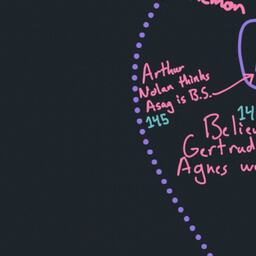 Arthur
Nolan thinks
Asag is B.S.
145
14
Belie
Gertrud
Agnes w